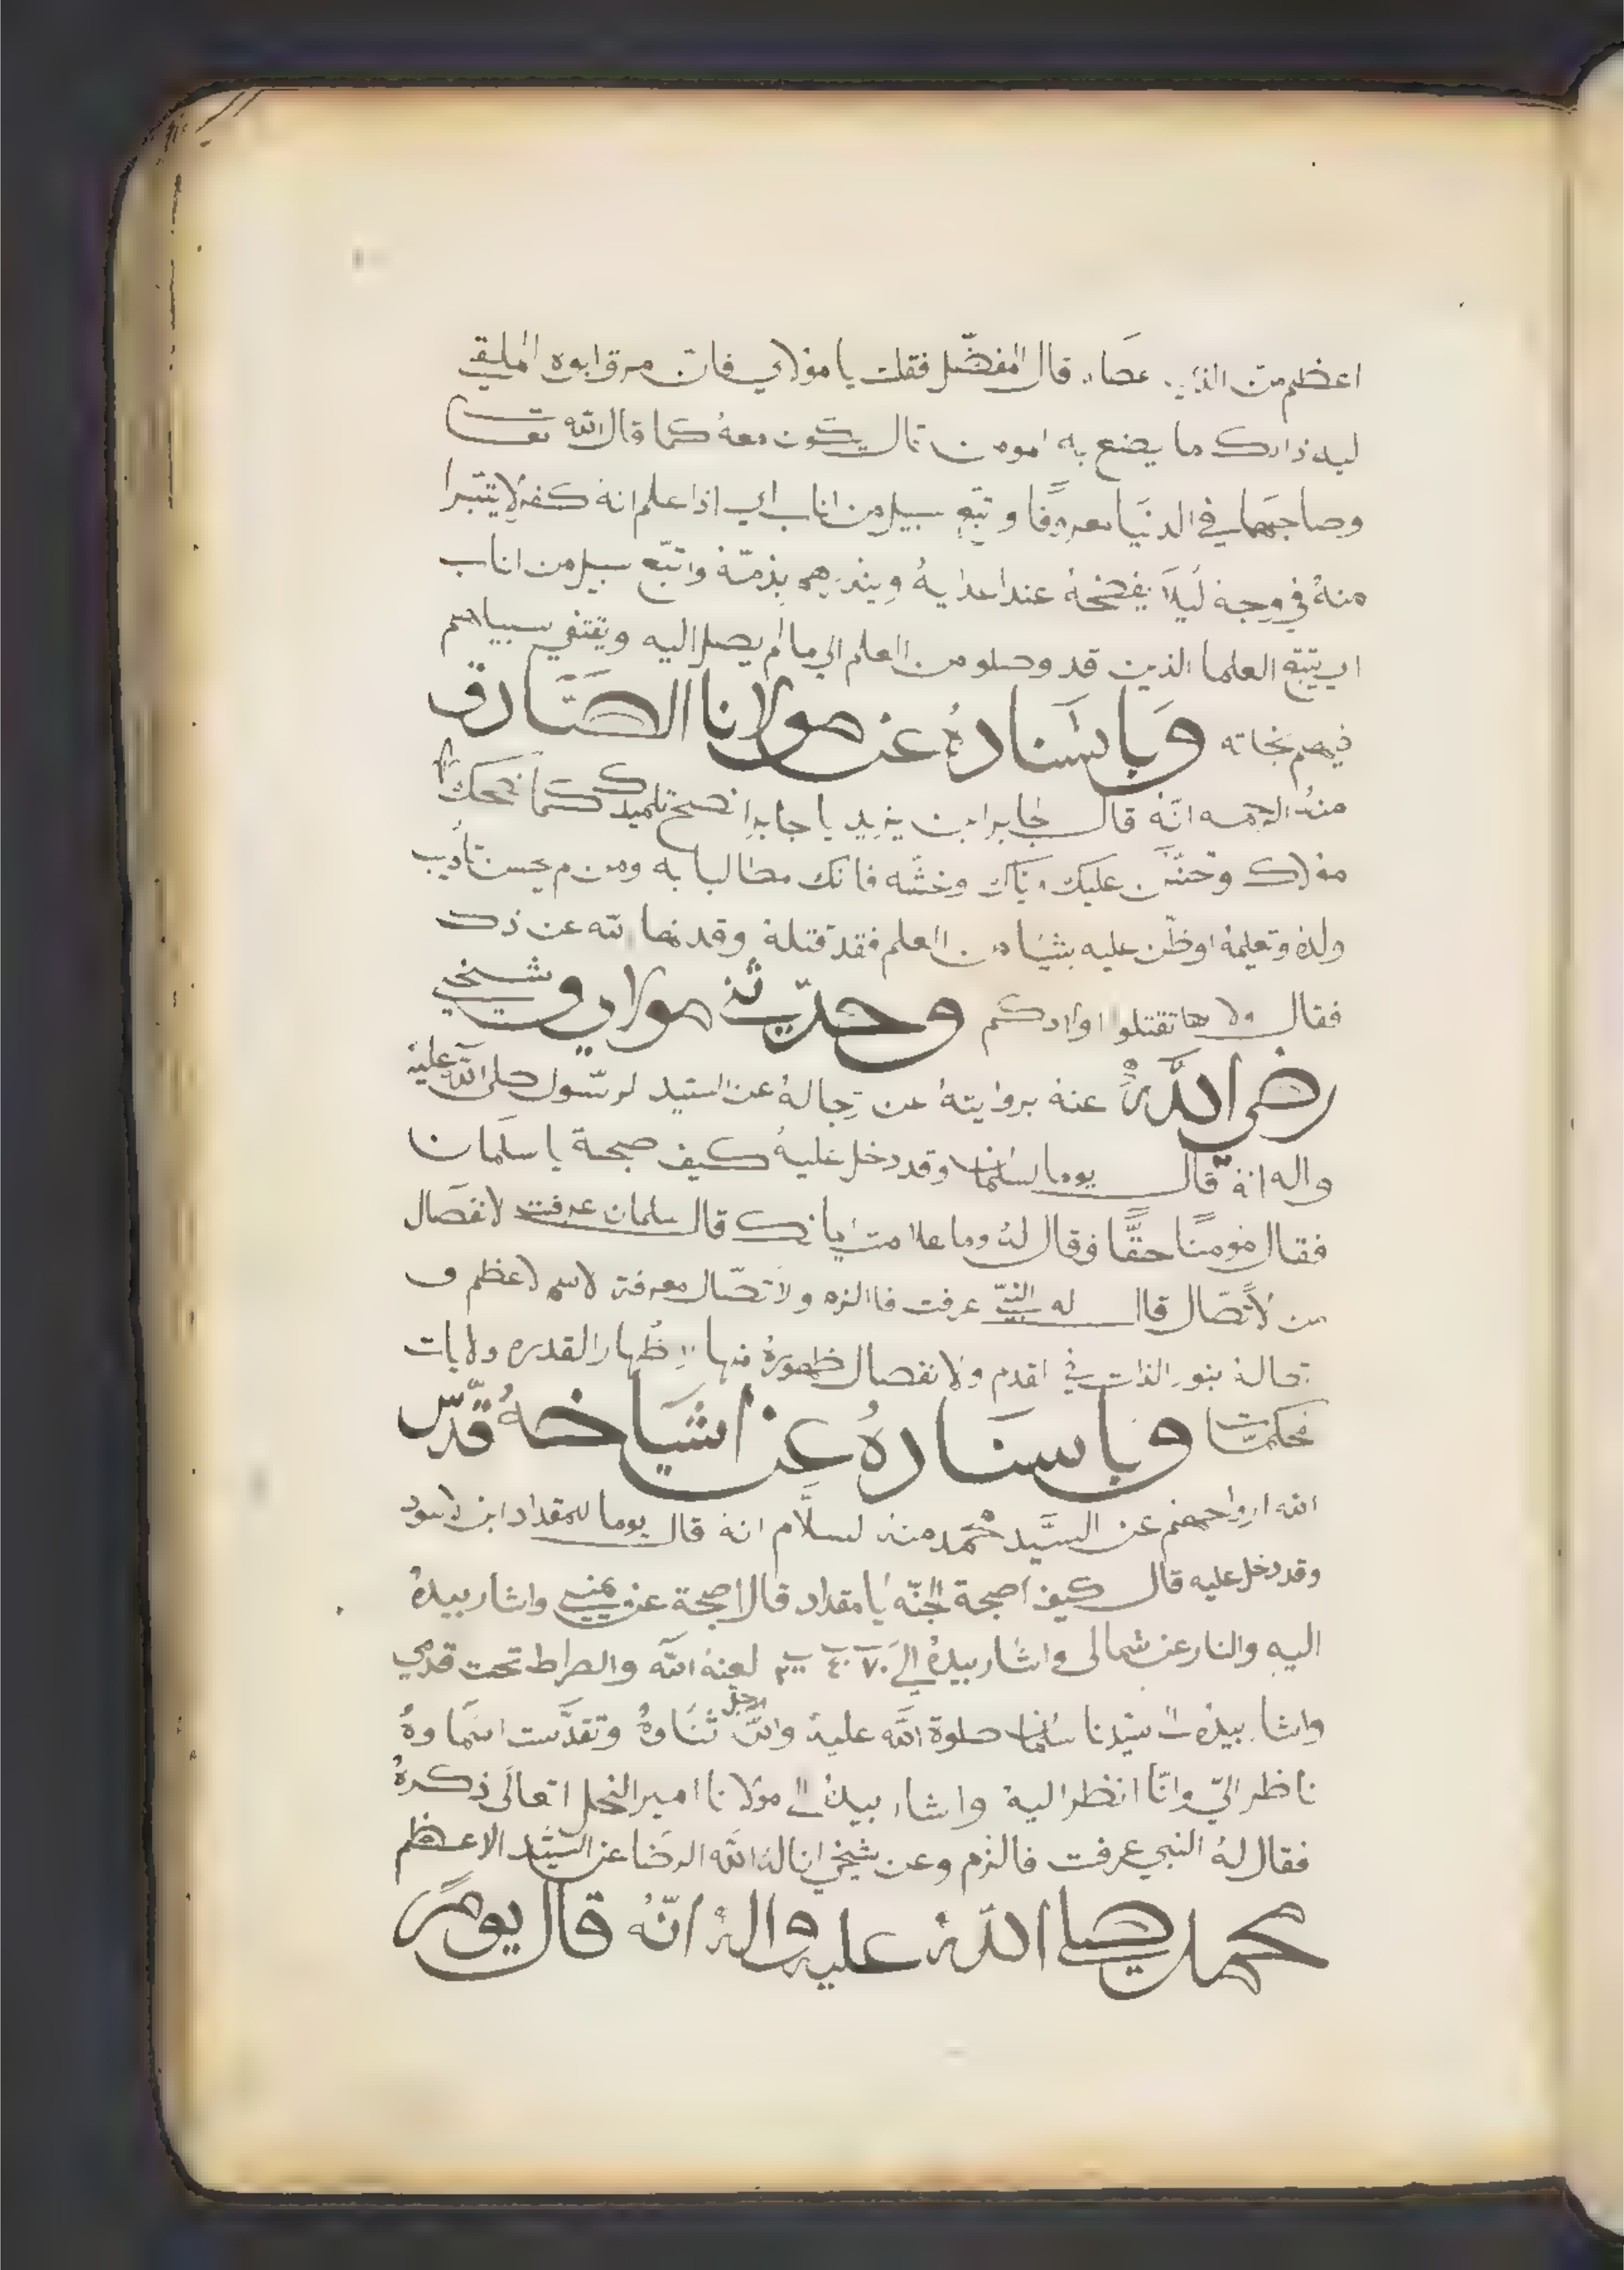 اعظم من الذي عصاه قال المفضّل فقلت يا مولاي فان مرق ابوه الملقي
ما يصنع به قال يكون معهُ كما قال الله تعا
وصاحبهما في الدنيَا معروفًا وتبّع سبيل من اناب اي اذا علم انهُ كفر لا يتبرا
منهُ في وجهة ليلَا يفضحهُ عند اعدايهُ بذمّة واتبّع سبيل من اناب
اي يتبّع العلما الذين قد وصلو من العلم الي ما لم يصل اليه ويقتفي سبيلهم
فيهم نجاته وَباسَنادهُ عن مولانا الصَّادق
منهُ الرحمه انّهُ قال لجابر ابن يزيد يا جابر انصح تلميدك كما نصحك
عليك فانك مطالبا به ومن لم يحسن تأديب
ولدهُ وتعليمهُ اوظّن عليه بشيَا من العلم فقد قتلهُ وقد نها الله عن ذلك
فقال ولا تقتلوا اولادكم وحدّثني مولاي وشيخي
رضي اللّهُ عنهُ بروايتهُ عن رجالهُ عن السيّد الرسّول صلى اللّه عليهُ
واله انهُ قال يوما لسَلمان وقد دخل عليهُ كيف صبحة يا سلمان
فقال مومنًا حقًّا فقال لهُ وما علامة ايمانك قال سلمان عرفت لانفصَال
من لاتّصَال قال له النبيّ عرفت فاالزم ولاتصّال معرفة لاسم لاعظم و
بنور الذات في القدم ولانفصال ظهورهُ منها لاظهار القدره ولايات
محكمات وَباسنَادهُ عن اشيَاخهُ قدّس
الله ارواحهم عن السيَّد محمّد منهُ لسلَام انهُ قال يوما للمقداد ابن لاسود
وقد دخل عليه قال كيف اصبحة الجنّه يا مقداد قال اصبحة عن يميني واشار بيدهُ
اليه والنار عن شمالى واشار بيدهُ الي لعنهُ اللّه والصراط تحت قدمي
واشار بيدهُ الى سيّدنا سلمان صلوة اللّه عليهُ واللّه جل ثناوهُ وتقدَّست اسمَاوهُ
ناظر اليّ وانّا انظر اليهُ واشار بيدهُ الى مولانا امير النحل تعالَى ذكرهُ
فقال لهُ النبي عرفت فالزم وعن شيخي انالهُ اللّه الرضَا عن السيّد الاعظم
محمد صلى اللّهُ عليه والهُ انّهُ قال يومً